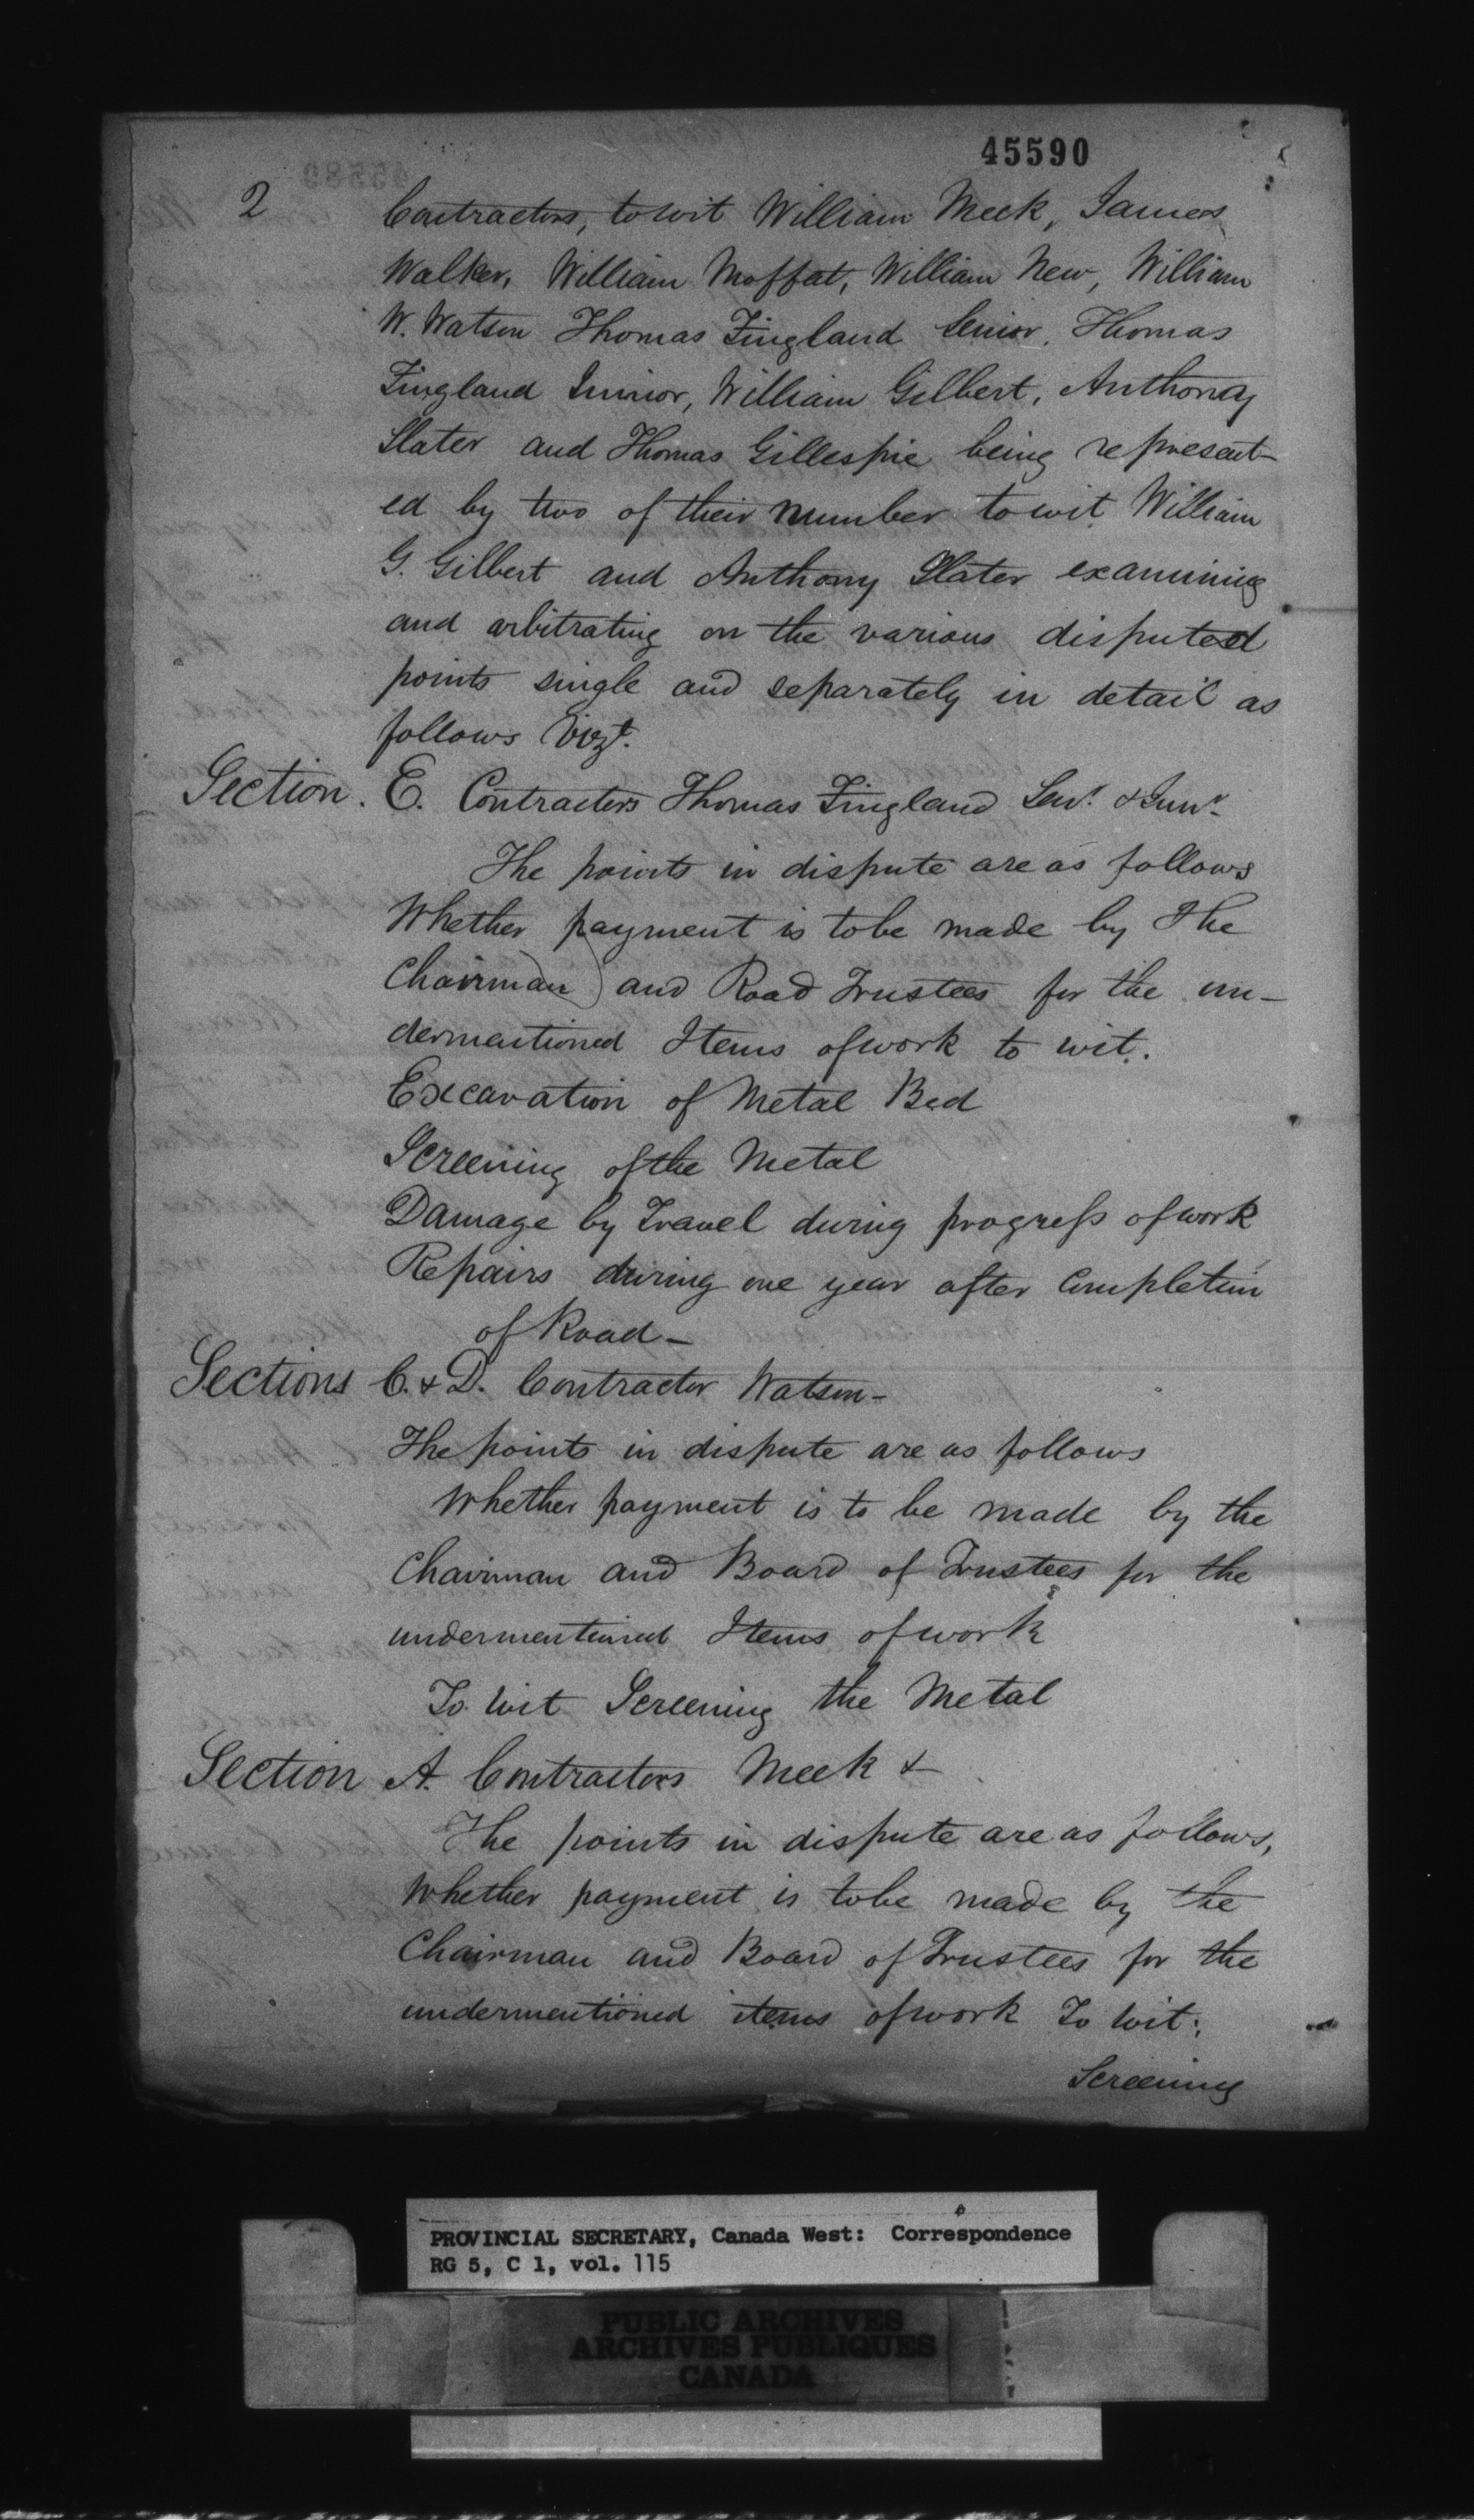 45590
2
Contractors, to wit William Meek, James
Walker, William Moffat, William New, William
W. Watson Thomas Fingland Senior, Thomas
Fingland Junior, William Gilbert, Anthony
Slater and Thomas Gillespie being represent-
ed by two of their number to wit William
G. Gilbert and Anthony Slater examining
and arbitrating on the various disputed
points single and separately in detail as
follows Vizt.
Section. E. Contractors Thomas Fingland Senr. & Junr.
The points in dispute are as follows
Whether payment is to be made by The
Chairman) and Road Trustees for the un-
dermentioned Items of work to wit.
Excavation of Metal Bed
Screening of the Metal
Damage by Travel during progress of work
Repairs during one year after Completion
of Road-
Sections C. & D. Contractor Watson-
The points in dispute are as follows
Whether payment is to be made by the
Chairman and Board of Trustees for the
undermentioned Items of work
To wit Screening the Metal
Section A. Contractors Meek &
The points in dispute are as follows,
Whether payment is to be made by the
Chairman and Board of Trustees for the
undermentioned items of work To wit;
Screening
PROVINCIAL SECRETARY, Canada West: Correspondence
RG 5, C 1, vol. 115
PUBLIC ARCHIVES
ARCHIVES PUBLIQUES
CANADA